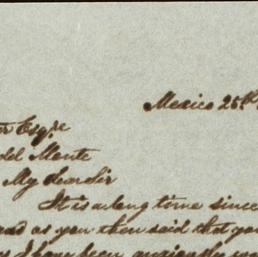 Mexico 25th
Esqre
del Monte
My dear Sir
It is a long time since
as you then said that you
I have been anxiously